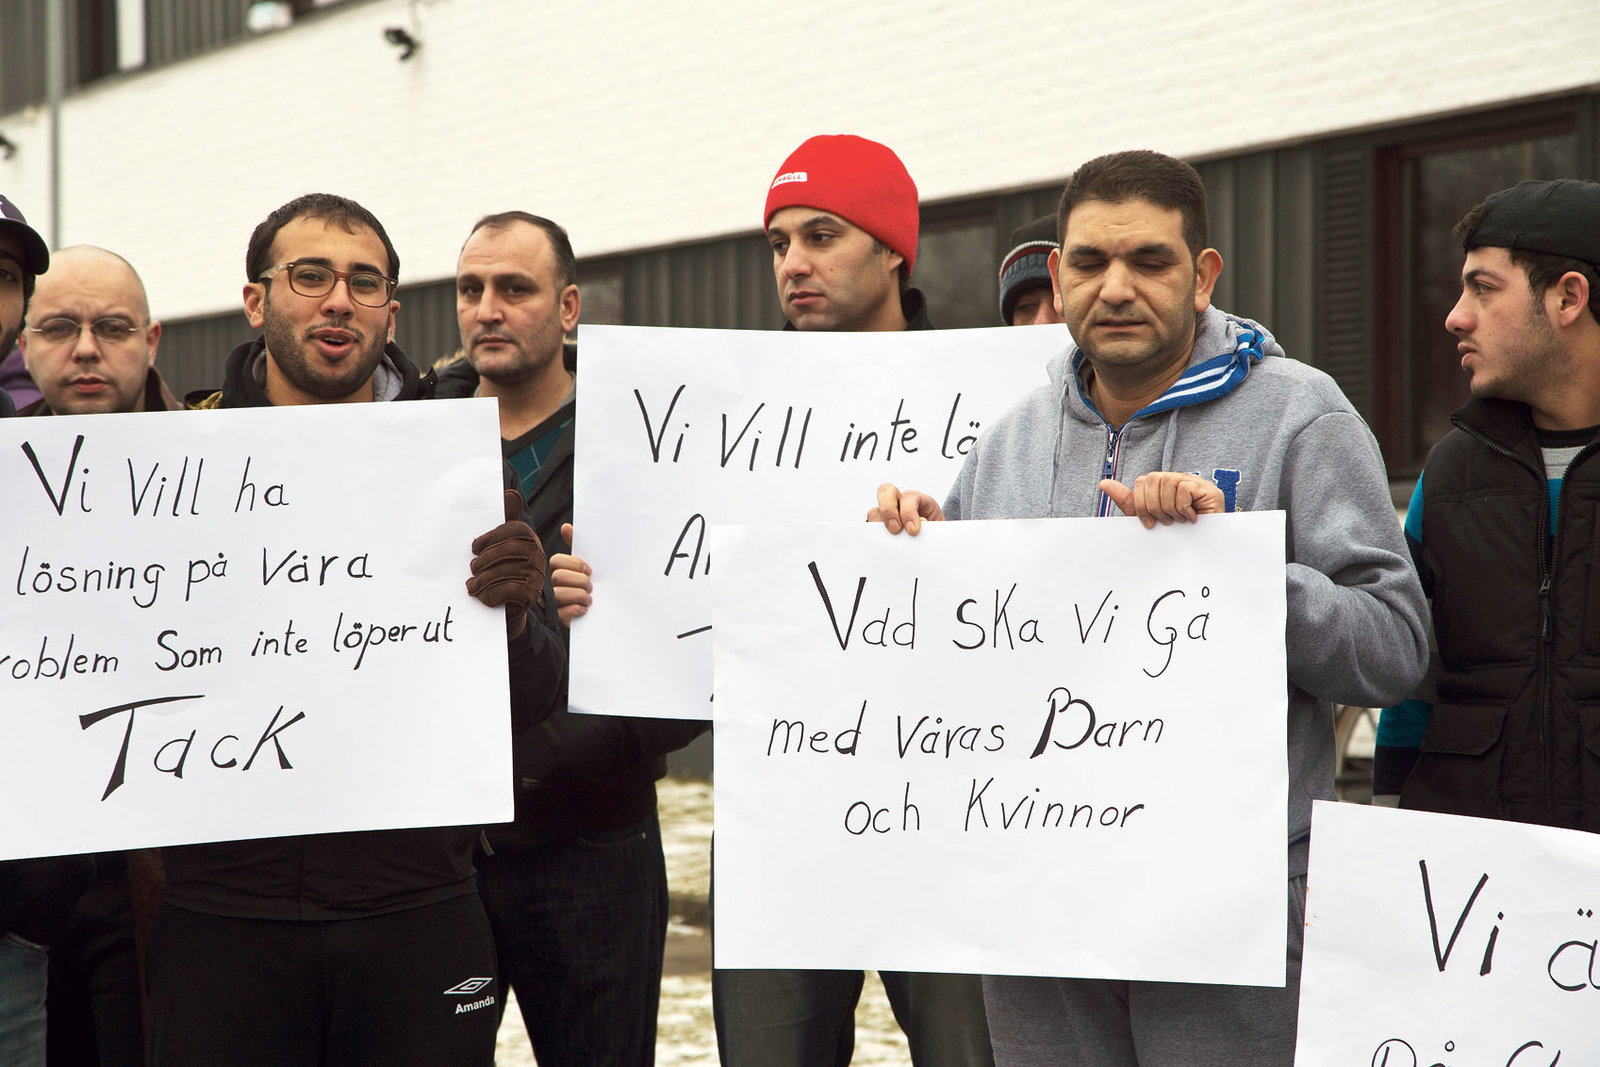 Vi Vill ha
lösning på Våra
roblem Som inte löper ut
Tack
Vi Vill inte lä
Vad Ska Vi Gå
med våras Barn
och Kvinnor
Vi ä
På
Amanda